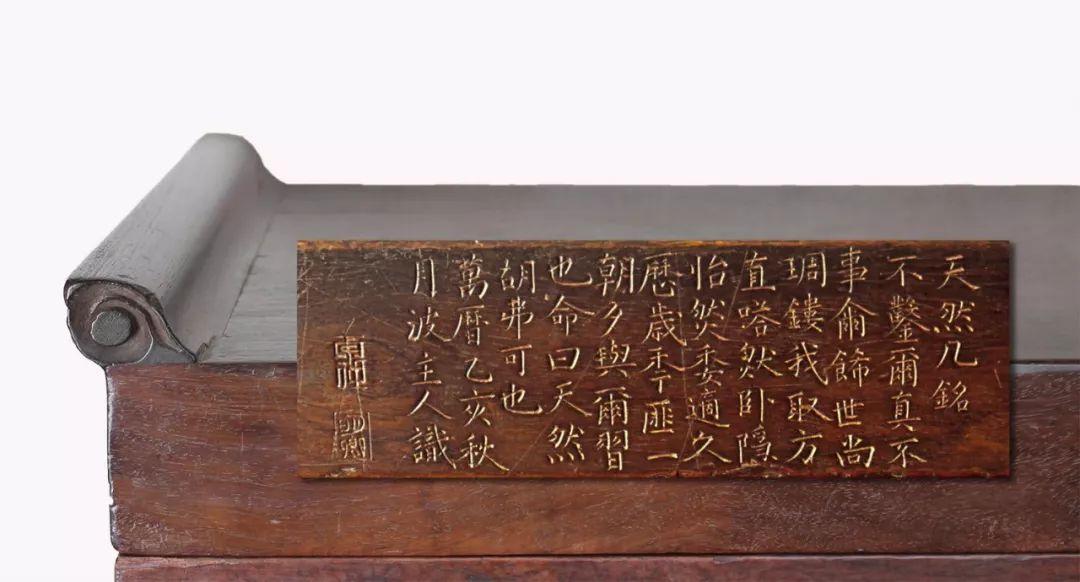 天然几銘
不鑿爾真不
事爾飾世尚
琱鏤我取方
直嗒然卧隱
怡然委適久
歷歲秊匪一
朝夕與爾習
也命曰天然
胡弗可也
萬曆乙亥秋
月波主人識